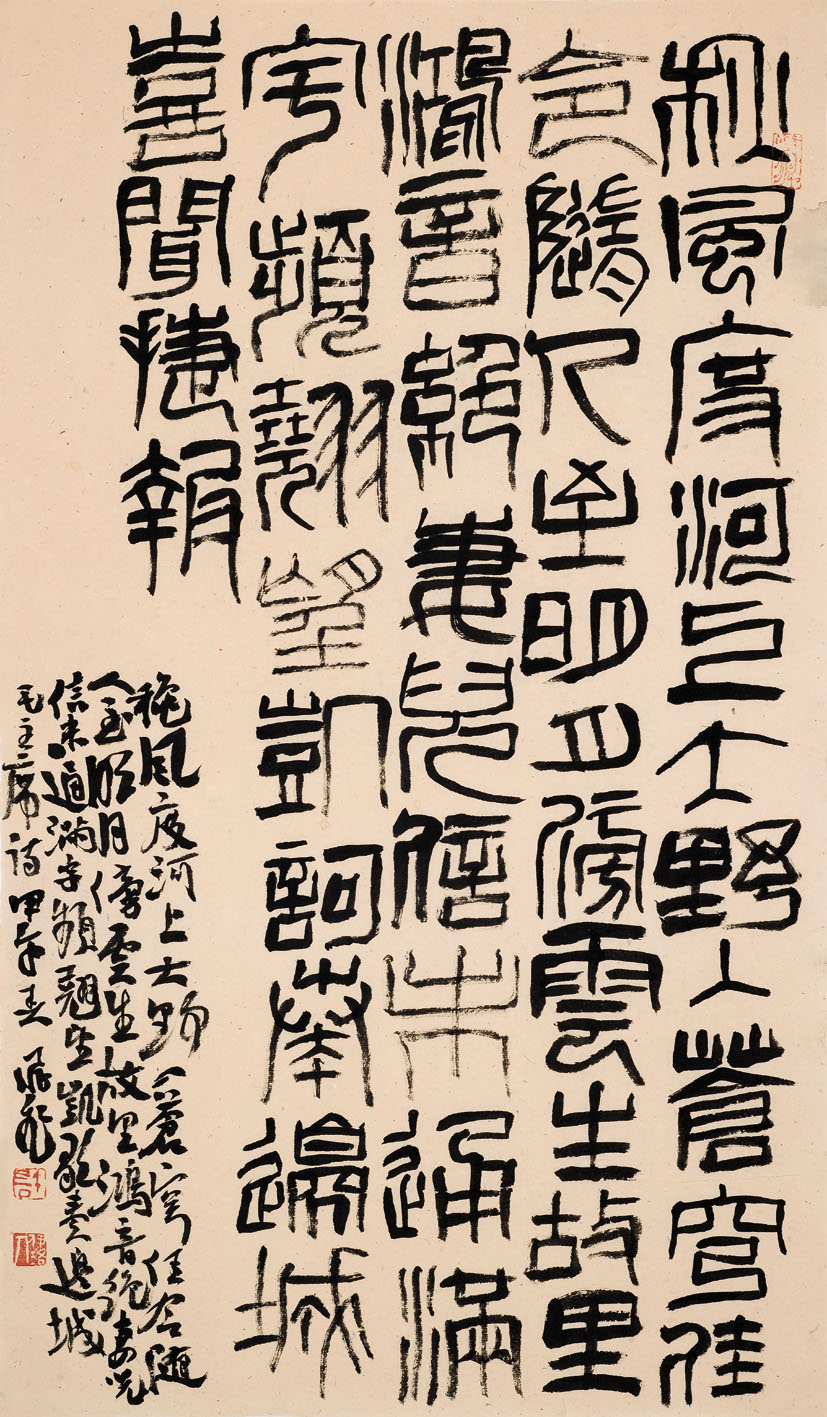 秋風度河上大野入蒼穹佳
令隨人至明月傍雲生故里
鴻音絕妻兒信未通滿
宇頻翹望凱訶奏邊城
喜聞捷報
秋風度河上大野入蒼穹佳令隨
人至明月旁雲生故里鴻音絕妻兒
信未通滿宇頻翹望凱歌奏邊城
毛主席詩甲午春